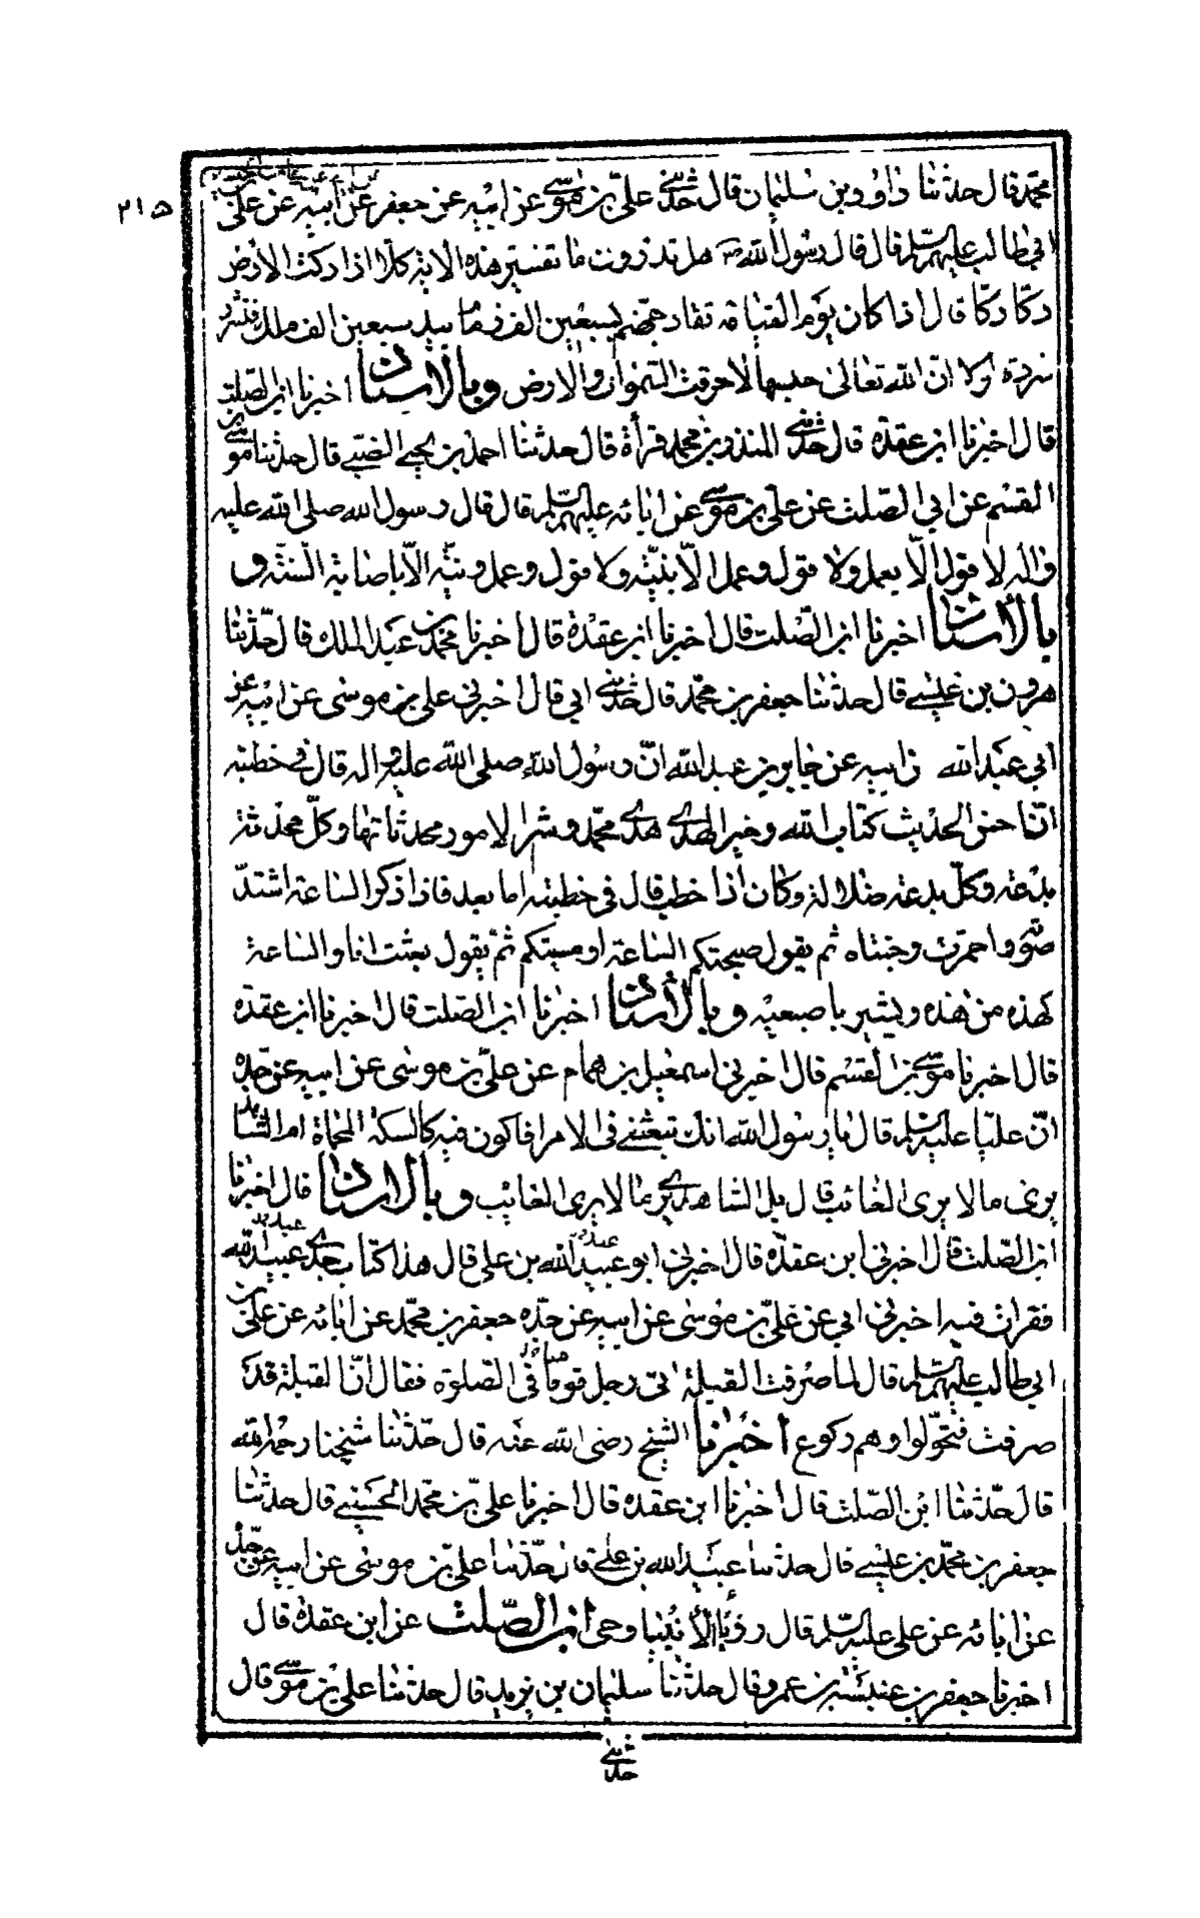 ٢١٥
محمد قال حدثنا داود بن سليمان قال حدثني علي بن موسى عن ابيه عن جعفر عن ابيه عن علي بن
ابي طالب عليهم السلم قال قال رسول الله ص هل تدرون ما تفسير هذه الاية كلا اذا دكت الارض
دكا دكا قال اذا كان يوم القيامة تقاد جهنم بسبعين الف زمام بيد سبعين الف ملك فتشرد
شردة لولا ان الله تعالى حبسها لاحرقت السموات والارض وبالاسناد اخبرنا ابن الصلت
قال اخبرنا ابن عقدة قال حدثني المنذر بن محمد قرأة قال حدثنا احمد بن يحيى الضبي قال حدثنا موسى بن
القسم عن ابي الصلت عن علي بن موسى عن ابائه عليهم السلم قال قال رسول الله صلى الله عليه
واله لا قول الا بعمل ولا قول وعمل الا بنية ولا قول وعمل ونية الا باصابة السنة و
بالاسناد اخبرنا ابن الصلت قال اخبرنا ابن عقدة قال اخبرنا محمد بن عبد الملك قال حدثنا
هرون بن عيسى قال حدثنا جعفر بن محمد قال حدثني ابي قال اخبرني علي بن موسى عن ابيه عن
ابي عبد الله عن ابيه عن جابر بن عبد الله ان رسول الله صلى الله عليه واله قال في خطبته
ان احسن الحديث كتاب الله وخير الهدى هدى محمد وشر الامور محدثاتها وكل محدثة
بدعة وكل بدعة ضلالة وكان اذا خطب قال في خطبته اما بعد فاذا ذكر الساعة اشتد
صوته واحمرت وجنتاه ثم يقول صبحتكم الساعة او مستكم ثم يقول بعثت انا والساعة
كهذه من هذه ويشير باصبعيه وبالاسناد اخبرنا ابن الصلت قال اخبرنا ابن عقدة
قال اخبرنا موسى بن القسم قال اخبرني اسمعيل بن همام عن علي بن موسى عن ابيه عن جده
ان عليا عليه السلم قال يا رسول الله انك تبعثني في الامر افاكون فيه كالسكة المحماة ام الشاهد
يرى مالا يرى الغائب قال بل الشاهد يرى ما لا يرى الغايب وبالاسناد قال اخبرنا
ابن الصلت قال اخبرني ابن عقدة قال اخبرني ابو عبيد الله بن علي قال هذا كتاب جدي عبيد الله
فقرات فيه اخبرني ابي عن علي بن موسى عن ابيه عن جده جعفر بن محمد عن ابائه عن علي بن
ابي طالب عليهم السلم قال لما صرفت القبلة اتى رجل قوما في الصلوة فقال ان القبلة قد
صرفت فتحولوا وهم ركوع اخبرنا الشيخ رضى الله عنه قال حدثنا شيخنا رحمه الله
قال حدثنا ابن الصلت قال اخبرنا ابن عقدة قال اخبرنا علي بن محمد الحسيني قال حدثنا
جعفر بن محمد بن عيسى قال حدثنا عبيد الله بن علي قال حدثنا علي بن موسى عن ابيه عن جده
عن ابائه عن علي عليه السلم قال رؤيا الانبيا وحى ابن الصلت عن ابن عقدة قال
اخبرنا جعفر بن عنبسة بن عمرو قال حدثنا سليمان بن يزيد قال حدثنا علي بن موسى قال
حدثني